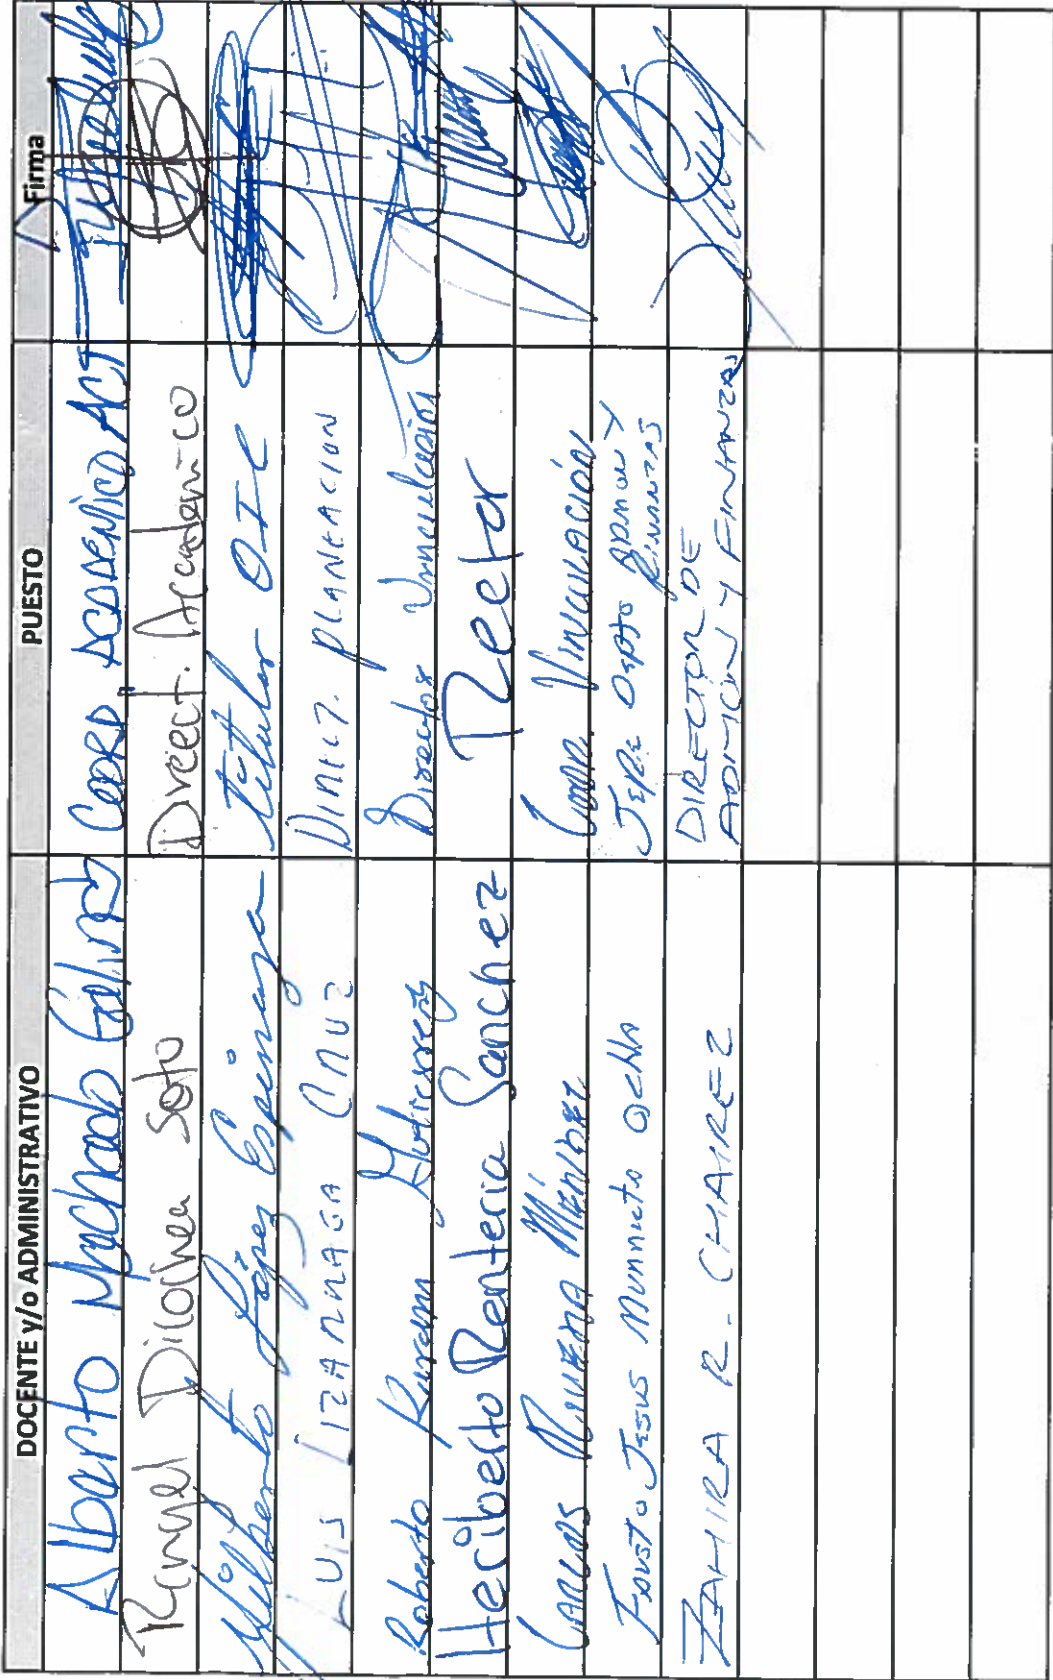 DOCENTE y/o ADMINISTRATIVO PUESTO Firma
Alberto Machado Galindo Coord Academico ACT
Rangel Dicochea Soto Direct. Academico
Gilberto López Espinoza Titular OIC
Luis Lizarraga Cruz Direct. Planeacion
Roberto Gutierrez Director Vinculación
Heriberto Renteria Sanchez Rector
Carlos Rivera Méndez Coor. Vinculación
Fausto Jesus Murrieta Ochoa Jefe Depto Admon y
Finanzas
Zahira R. Chairez DIRECTOR DE
ADMON Y FINANZAS